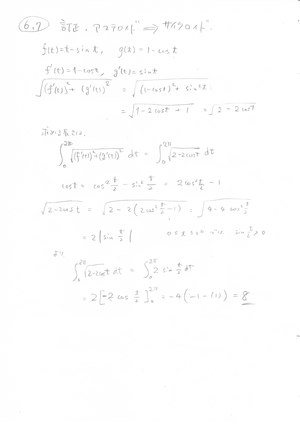 6.7 訂正、アステロイド ⇒ サイクロイド
f(t) = t - sin t, g(t) = 1 - cos t
f'(t) = 1 - cos t, g'(t) = sin t
√((f'(t))² + (g'(t))²) = √((1 - cos t)² + sin² t)
= √(1 - 2cos t + 1) = √(2 - 2cos t)
∫₀^{2π} √((f'(t))² + (g'(t))²) dt = ∫₀^{2π} √(2 - 2cos t) dt
cos t = cos² t/2 - sin² t/2 = 2cos² t/2 - 1
√(2 - 2cos t) = √(2 - 2(2cos² t/2 - 1)) = √(4 - 4cos² t/2)
= 2|sin t/2| 0 ≤ t ≤ 2π sin t/2 ≥ 0
より
∫₀^{2π} √(2 - 2cos t) dt = ∫₀^{2π} 2 sin t/2 dt
= 2[-2 cos t/2]₀^{2π} = -4(-1-(1)) = 8